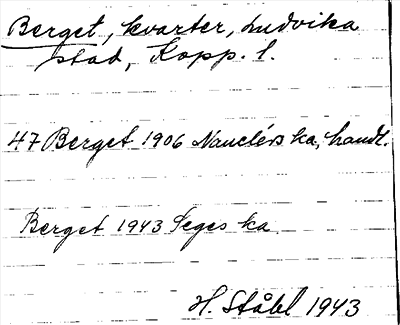 Berget, kvarter, Ludvika
stad, Kopp. l.
47 Berget 1906 Nauclérs ka, handl.
Berget 1943 Seges ka
H. Ståhl 1943